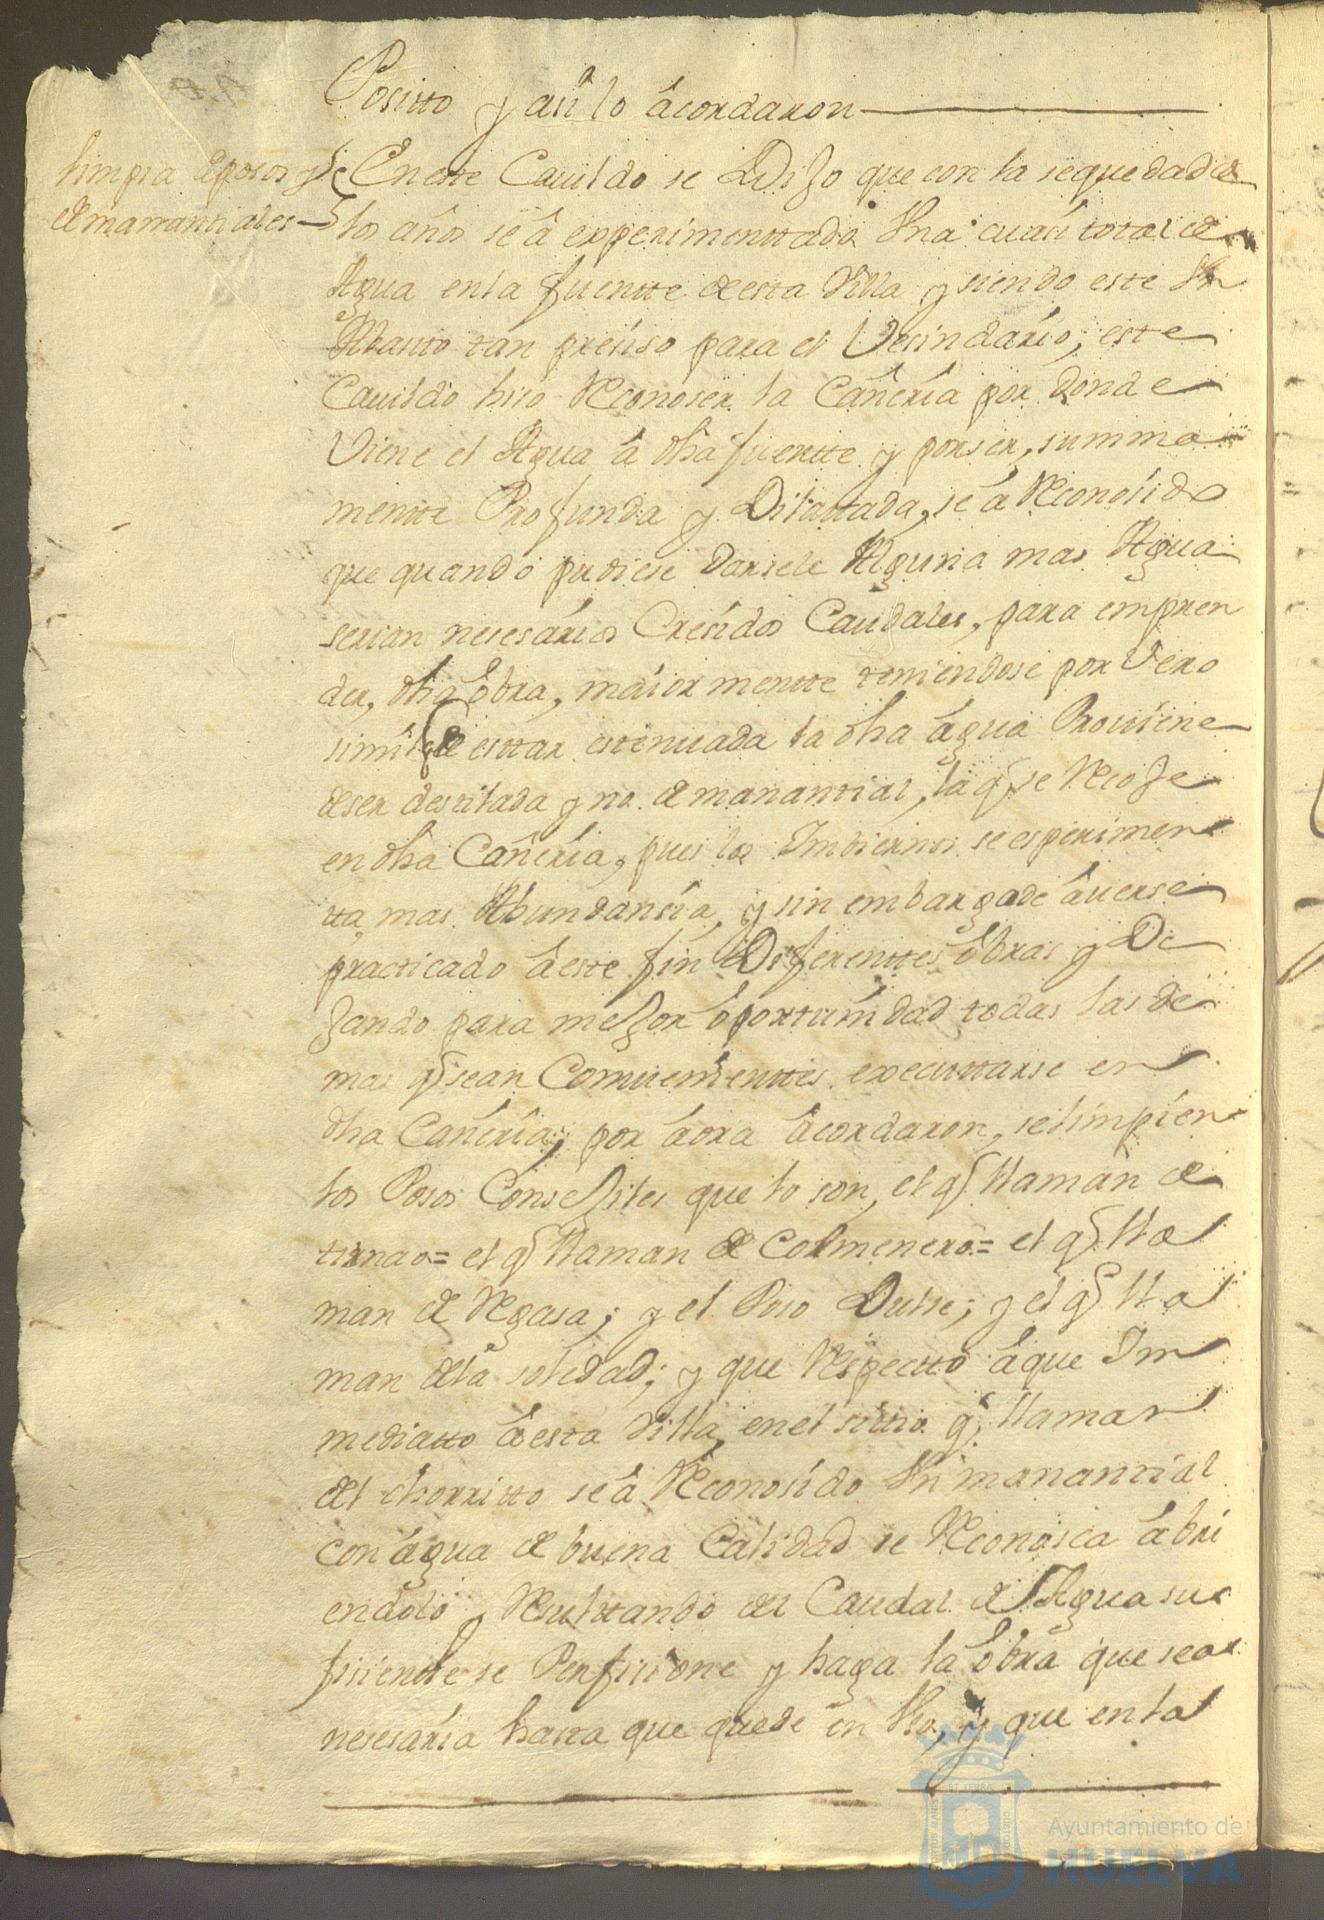 Positto y asi lo âcordaron
limpia de posos y
de manantiales
En este Cauildo se Dijo que con la sequedad de
los años se â experimenttado Una cuasi total de
Agua en la fuentte de esta Villa y siendo este Un
Abasto tan presiso para el Vesindario; este
Cauildo hiso Reconoser la Cañería por donde
Viene el Agua â dha fuentte y por ser, summa
mentte Profunda y Dilattada, se â Reconosido
que quando pudiese darsele Alguna mas Agua
serian nesesários Cresidos Caudales, para empren
der, dha obra, maiormentte teniendose por Vero
simil de esttar estenuada la dha âgua Prouiene
de ser destilada y no de manantial, la q se Recoje
en dha Cañería, pues los Imbiernos se esperimen
tta mas Abundansia, y sin embargo de âuerse
practicado â este fin Diferenttes obras y De
jando para mejor oportunidad todas las de
mas q sean Conuenienttes executtarse en
dha Cañería; por âora âcordaron, se limpien
los Posos Consejiles que lo son, el q llaman de
tirnao= el q llaman de Colmenero= el q lla
man de Regasa; y el Poso Dulse; y el q lla
man de la soledad; y que Respectto â que Im
mediatto â esta Villa, en el sittio q llaman
del chorritto se â Reconosido Un manantial
con âgua de buena Calidad se Reconosca âbri
endolo y Resulttando el Caudal de Agua su
fisientte se Perfisione y haga la obra que sea
nesesaria hasta que quede en Uso, y que en la
Ayuntamiento de
HUELVA